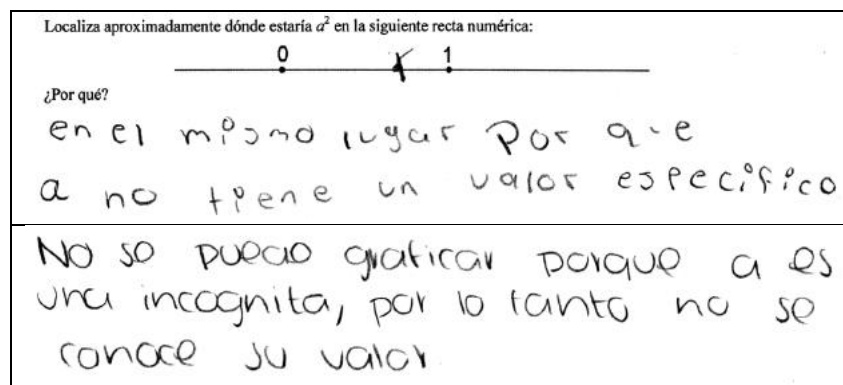 Localiza aproximadamente dónde estaría a² en la siguiente recta numérica:
0 1
¿Por qué?
en el mismo lugar Por que
a no tiene un valor específico
No se puede graficar porque a es
una incognita, por lo tanto no se
conoce su valor